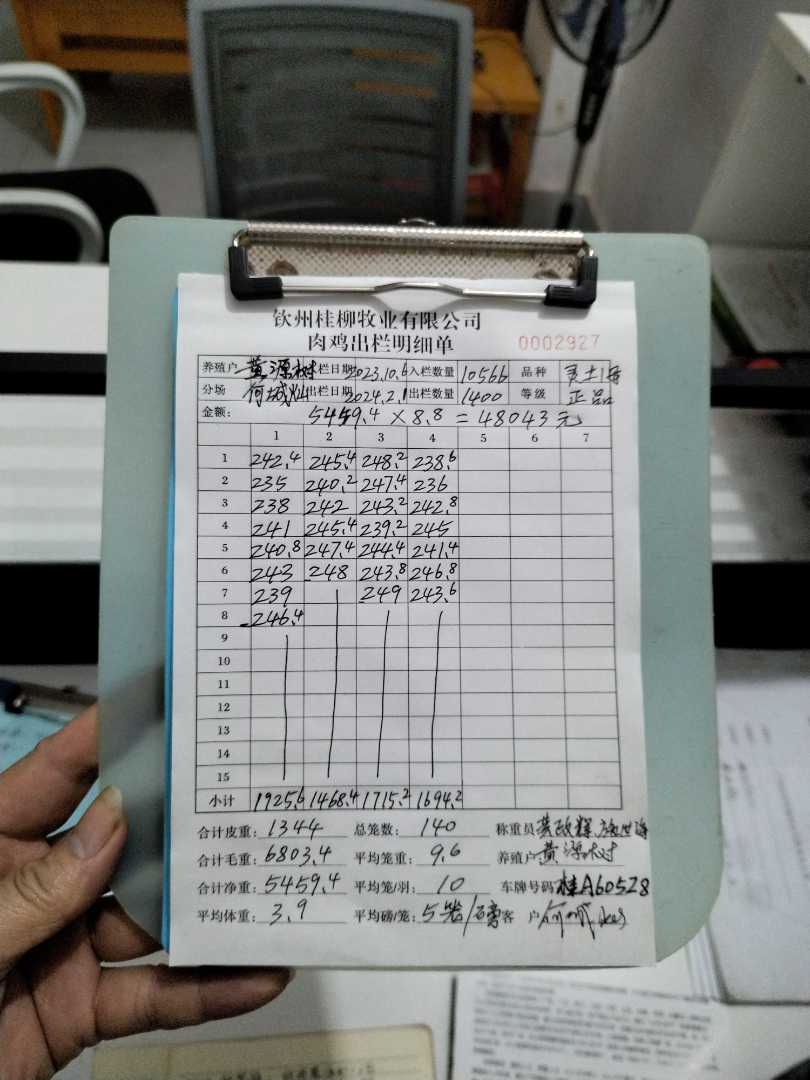 钦州桂柳牧业有限公司
肉鸡出栏明细单 0002927
养殖户 黄源树 入栏日期 2023.10.6 入栏数量 10566 品种 灵土1号
分场 出栏日期 2024.2.1 出栏数量 1400 等级 正品
金额： 5459.4 × 8.8 = 48043元
1 2 3 4 5 6 7
1 242.4 245.4 248.2 238.6
2 235 240.2 247.4 236
3 238 242 243.2 242.8
4 241 245.4 239.2 245
5 240.8 247.4 244.4 241.4
6 243 248 243.8 246.8
7 239 249 243.6
8 246.4
9
10
11
12
13
14
15
小计 1925.6 1468.4 1715.2 1694.2
合计皮重： 1344 总笼数： 140 称重员
合计毛重： 6803.4 平均笼重： 9.6 养殖户 黄源树
合计净重： 5459.4 平均笼/羽： 10 车牌号码 桂A60528
平均体重： 3.9 平均磅/笼： 5 客 户